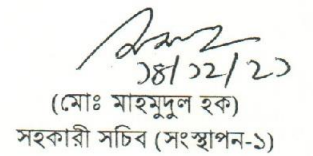 ১৪/১২/২১
(মোঃ মাহমুদুল হক)
সহকারী সচিব (সংস্থাপন-১)